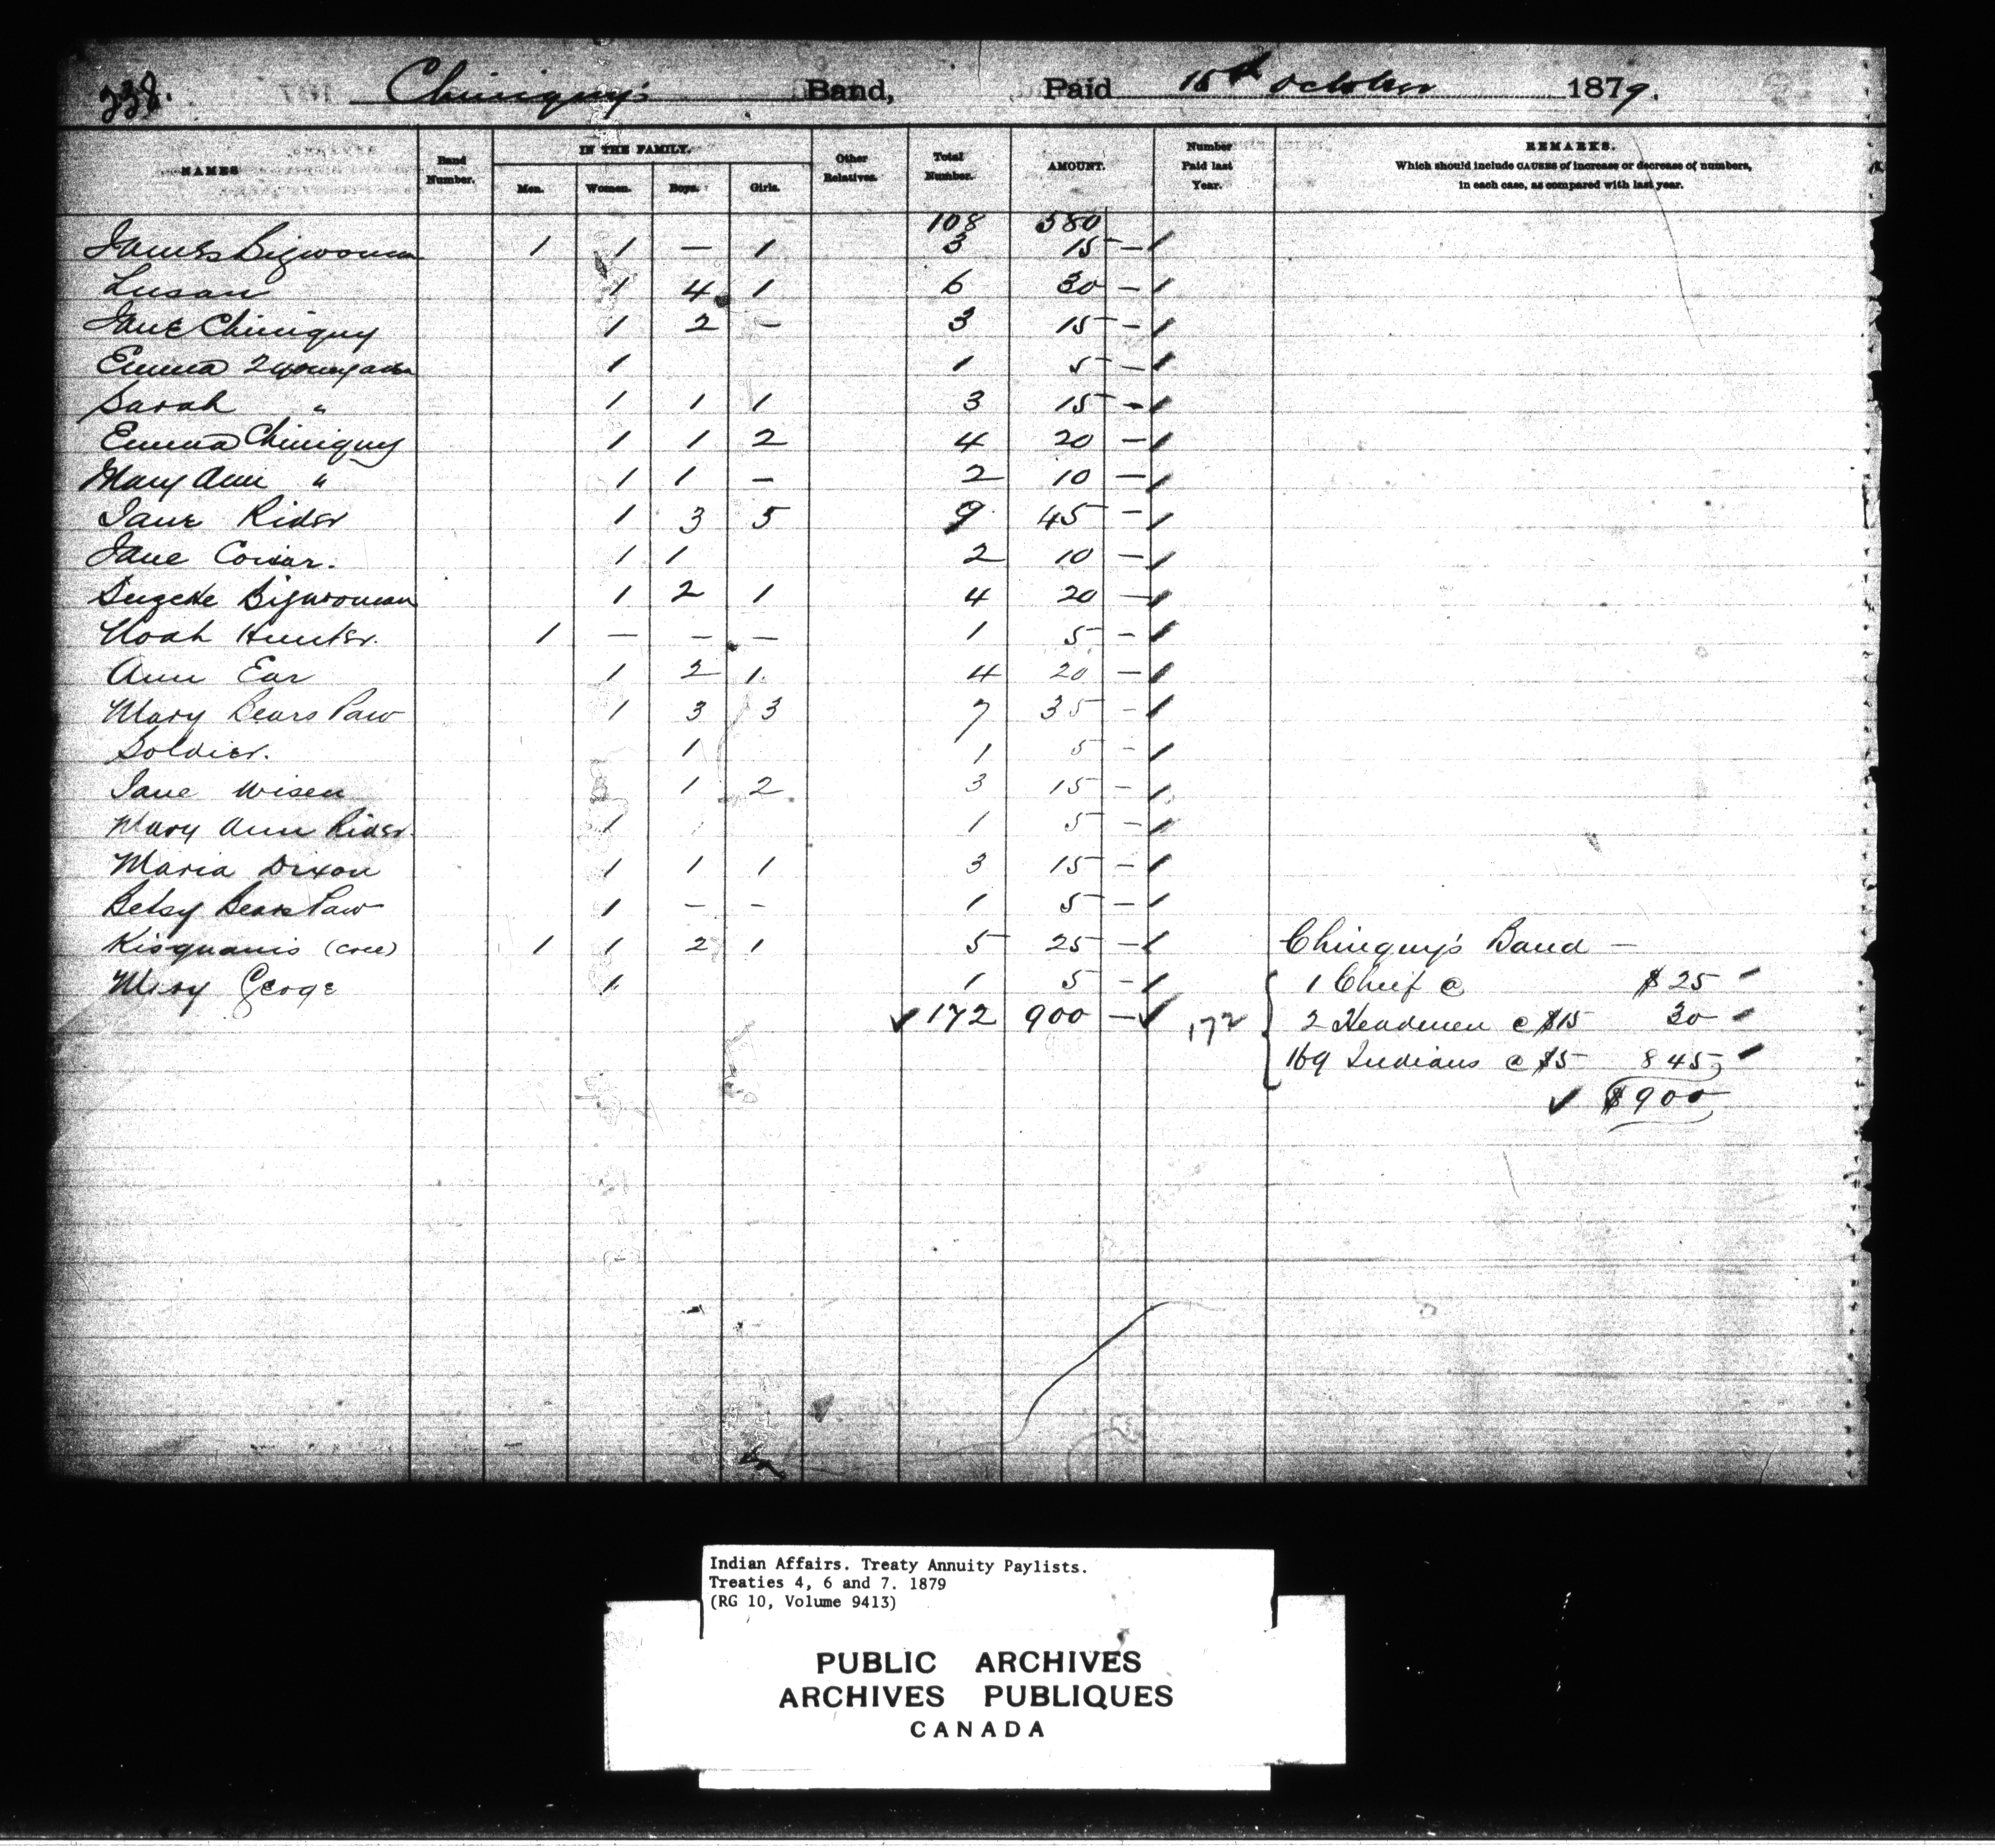 338. Chiniquy's Band, Paid 15th October 1879.
NAMES Band Number. IN THE FAMILY. Men. Women. Boys. Girls. Other Relatives. Total Number. AMOUNT. Number Paid last Year. REMARKS. Which should include CAUSES of increase or decrease of numbers, in each case, as compared with last year.
108 580
James Bigwoman 1 1 — 1 3 15 —
Susan 1 4 1 6 30 —
Jane Chiniquy 1 2 — 3 15 —
Emma 2 1 1 5 —
Sarah " 1 1 1 3 15 —
Emma Chiniquy 1 1 2 4 20 —
Mary Ann " 1 1 — 2 10 —
Jane Rider 1 3 5 9 45 —
Jane 1 1 2 10 —
Bigwoman 1 2 1 4 20 —
Noah Hunter. 1 — — — 1 5 —
Ann Ear 1 2 1. 4 20 —
Mary Bears Paw 1 3 3 7 35 —
Soldier. 1 1 5 —
Jane Wisen 1 2 3 15 —
Mary Ann Rider. 1 1 5 —
Maria Dixon 1 1 1 3 15 —
Betsy Bears Paw 1 — — 1 5 —
Kisquanis (Cree) 1 1 2 1 5 25 — Chinquy's Band —
Mary George 1 1 5 — 1 Chief @ $25
✓ 172 900 — ✓ 172 2 Headmen @ $15 30
169 Indians @ $5 845
✓ $900
Indian Affairs. Treaty Annuity Paylists.
Treaties 4, 6 and 7. 1879
(RG 10, Volume 9413)
PUBLIC ARCHIVES
ARCHIVES PUBLIQUES
CANADA